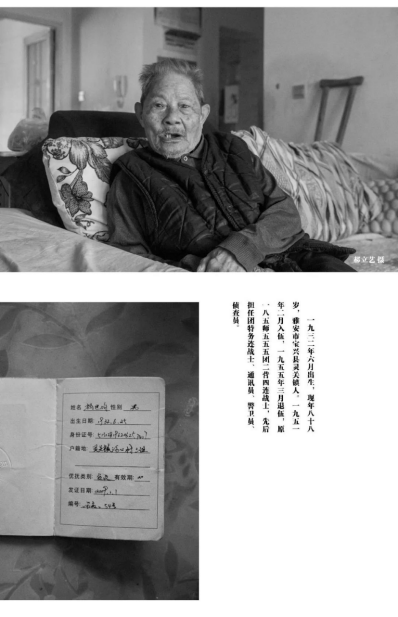 郝立艺 摄
一九三二年六月出生，现年八十八
岁，雅安市宝兴县灵关镇人。一九五一
年二月入伍，一九五五年三月退伍，原
一八五师五五五团二营四连战士，先后
担任团特务连战士、通讯员、警卫员、
侦查员。
姓名 性别
出生日期:
身份证号:
户籍地:
优抚类别: 有效期:
发证日期:
编号: